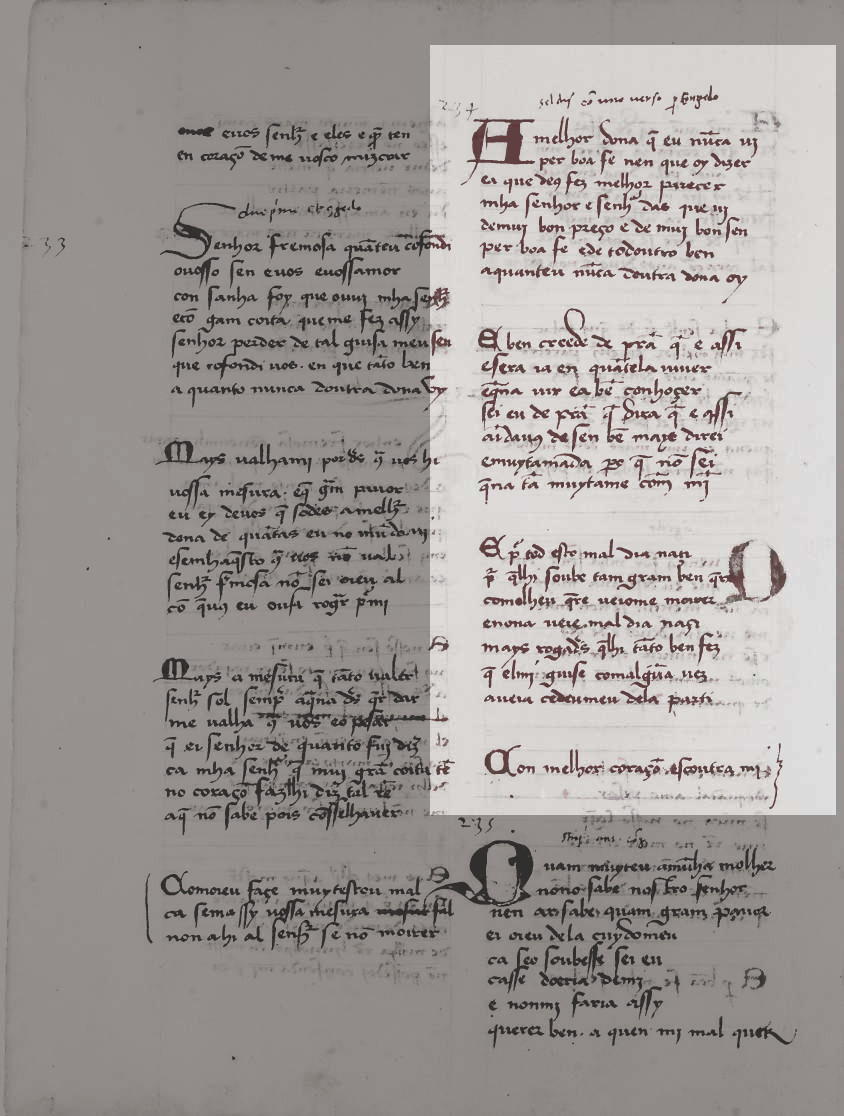 evos senhʳ e eles e q̄ ten
en coraçō de me vosco mizcrar
233
Senhor fremosa quāteu cōfondi
ovosso sen evos evossamor
con sanha foy que ouvi mha senhʳ
ecō gam coita que me fez assy
senhor perder de tal guisa meu sen
que cofondi vos. en que tāto ben
a quanto nunca doutra dona oy
Mays valhami por ds̄ q̄ vos hi
vossa mesura. eq̄ grā pavor
eu ey devos q̄ sodes amelhʳ
dona de quātas eu no mūdo vi
esemhaq̄sto q̄ nō val
senhʳ fʳmosa nō sei oieu al
cō q̄ vꝯ eu ousi rogʳ pʳ mi
Mays a mesura q̄ tāto valer
senhʳ sol sempʳ aq̄na ds̄ q̄r dar
me valha
q̄ ei senhor de quanto fuy diz
ca mha senhʳ q̄ mui grā coita tē
no coraçō fazlhi diz tal rē
aq̄ nō sabe pois cōsselhaver
Comoieu façe muytestou mal
ca semassy vossa mesura fal
non ahi al senhʳ se nō morrer
234
A melhor dona q̄ eu nūca vi
per boa fe nen que oy dizer
ei que deꝯ fez melhor parecer
mha senhor e senhʳ das que vi
demui bon preço e de mui bon sen
per boa fe ede todoutro ben
aquanteu nūca doutra dona oy
E ben creede de prā q̄ e assi
esera ia en quātela viver
eq̄na vir ea bē conhoçer
sei eu de prā q̄ dira q̄ e assi
aidavꝯ de sen bē mays direi
emuytamada pʳo q̄ nō sei
q̄na tā muytame comʳ mī
E pʳ tod esto mal dia naçi
pʳ q̄lhi soube tam gram ben q̄rer
comolheu q̄re veiome morrer
enona veie. mal dia naçi
mays rogads̄ q̄lhi tāto ben fez
q̄ elmi guise comalgūa vez
aveia cedeumeu dela parti
Con melhor coraçō. escontra mi
235
Quam muyteu amūha molher
nōno sabe nostro senhor
nen ar sabe quam gram pavor
ei oieu dela cuydomeu
ca seo soubesse sei eu
casse doeria demi
e nonmi faria assy
querer ben. a quen mi mal quer